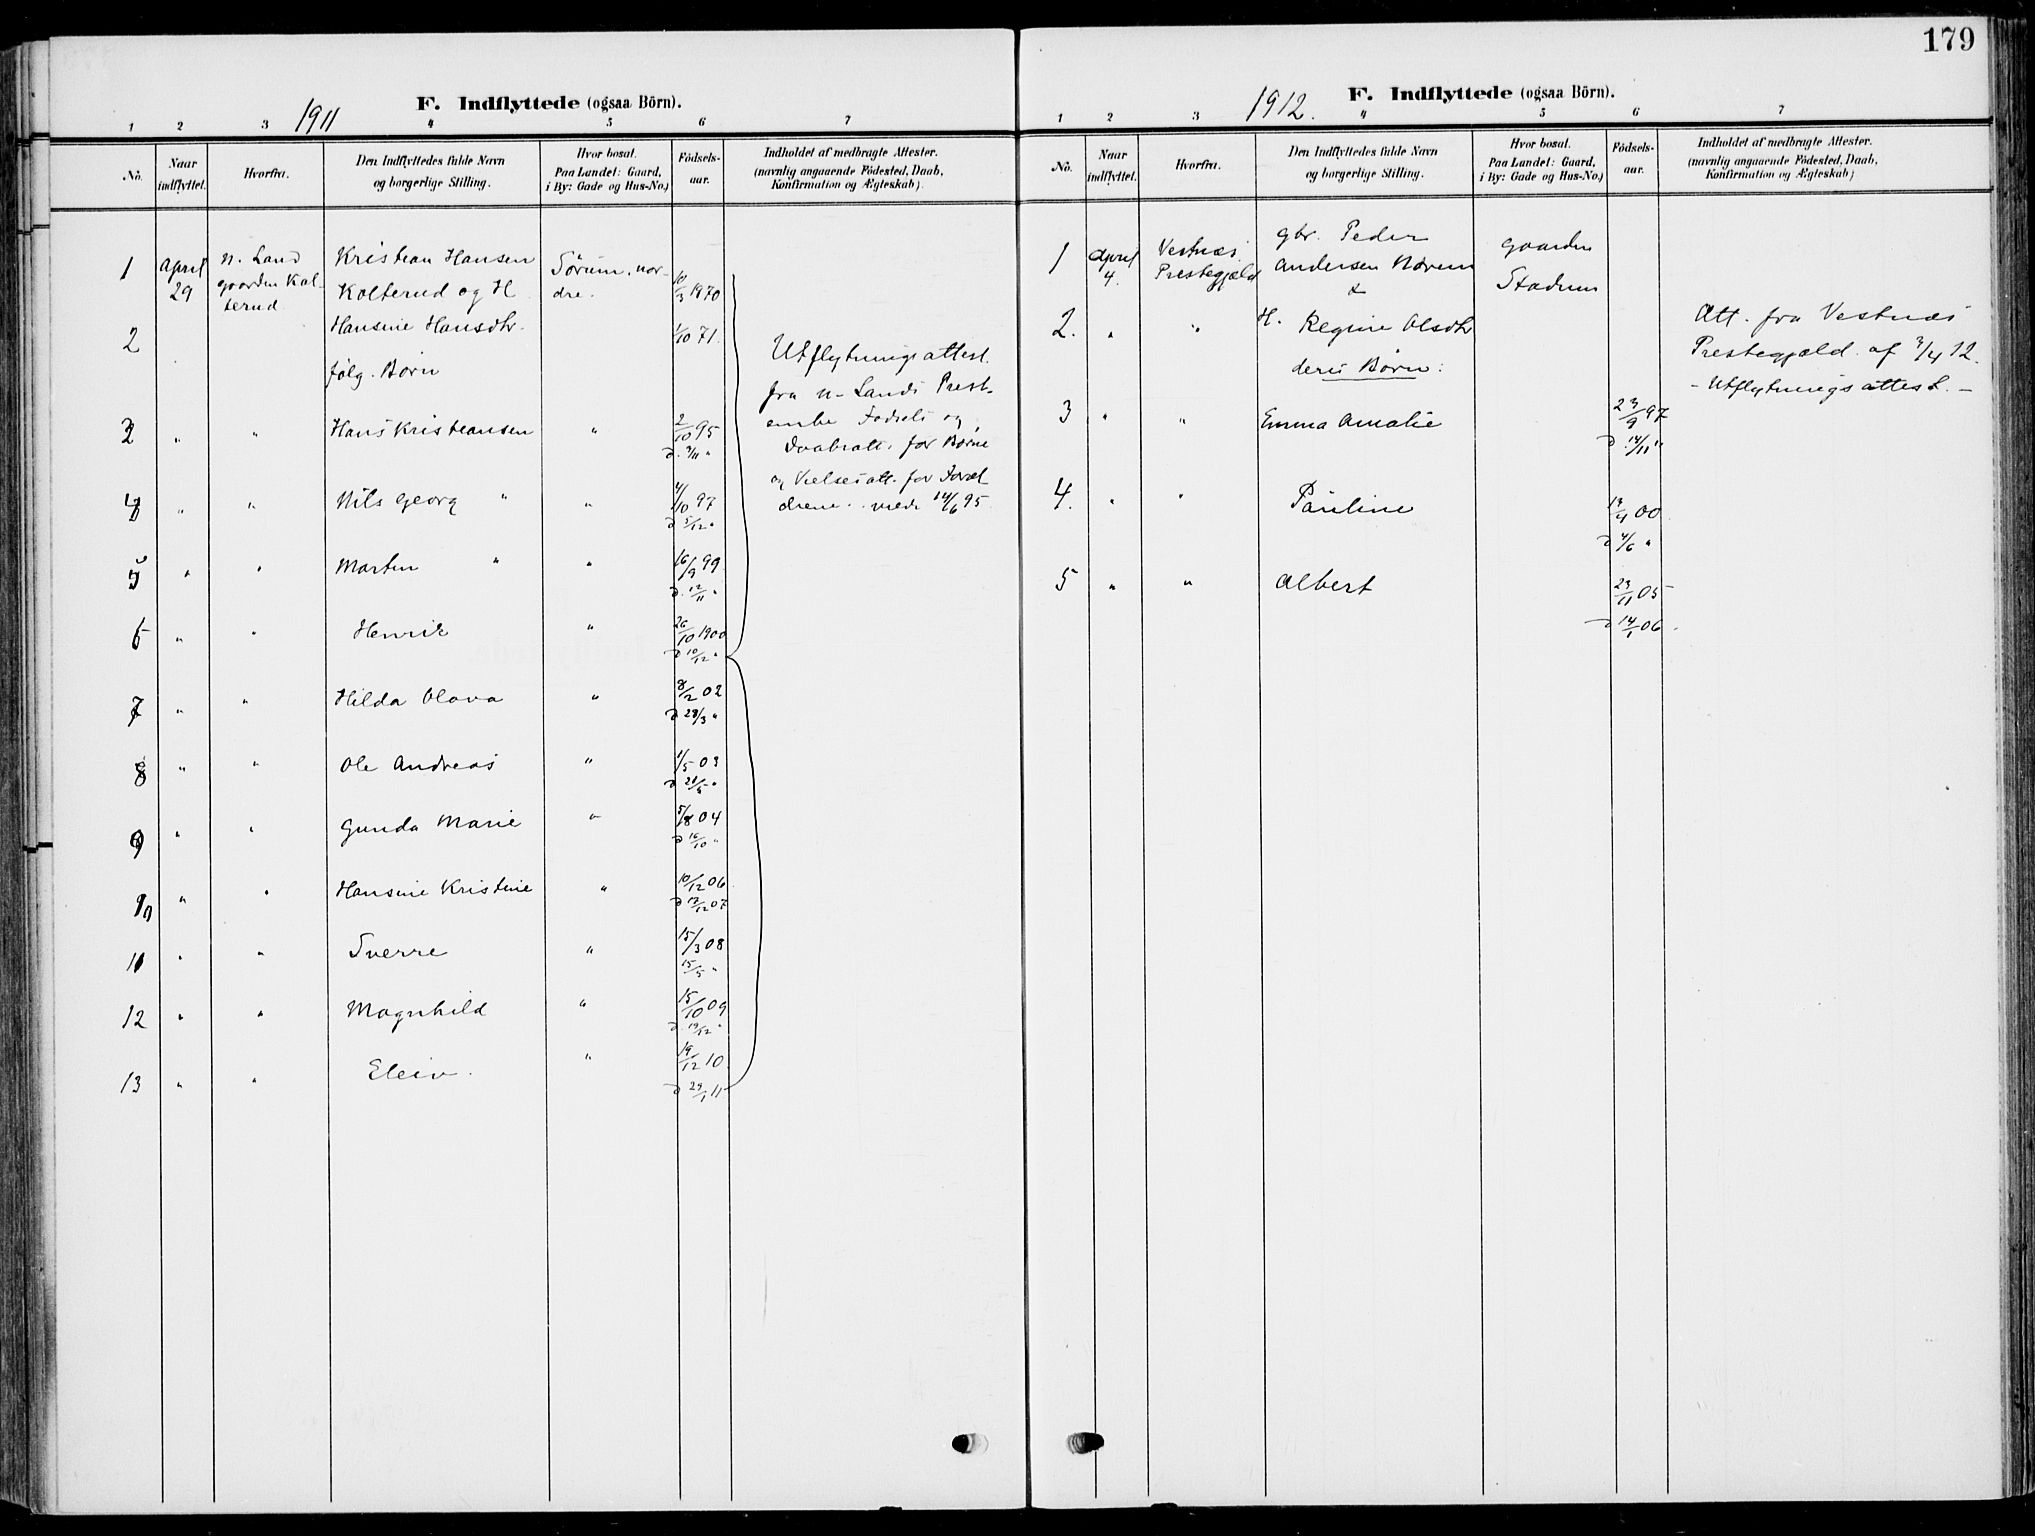 F. Indflyttede (ogsaa Börn).
1911
1 2 3 4 5 6 7
No. Naar indflyttet. Hvorfra. Den Indflyttedes fulde Navn og borgerlige Stilling. Hvor bosat. Paa Landet: Gaard, i By: Gade og Hus-No.) Födsels-aar. Indholdet af medbragte Attester. (navnlig angaaende Födested, Daab, Konfirmation og Ægteskab).
1 April 29 N. Land gaarden Kolterud Kristian Hansen Kolterud og H. Sörum, nordre. 10/3 1870
2 Hansine Hansdtr. 1/10 71.
følg. Børn
Utflytningsattest
fra N. Lands Prest-
embe Fødsels og
Daabsatt. for Børne
og Vielsesatt. for Foræl-
drene
14/6 95
3 " " Hans Kristiansen " 2/10 95
d. 3/11 "
4 " " Nils Georg " " 4/10 97
d 5/12 "
5 " " Martin " " 16/9 99
d. 12/11 "
6 " " Henrik " 26/10 1900
d 10/12 "
7 " " Hilda Olava " 8/2 02
d 28/3 "
8 " " Ole Andreas " 1/5 03
d 21/5 "
9 " " Gunda Marie " 5/8 04
d 16/10 "
10 " " Hansine Kristine " 10/12 06
d 13/12 07
11 " " Sverre " 15/3 08
15/5 "
12 " " Magnhild " 15/10 09
d. 19/12 "
13 " " Eleiv. " 19/12 10
d 29/1 11
179
F. Indflyttede (ogsaa Börn).
1912.
1 2 3 4 5 6 7
No. Naar indflyttet. Hvorfra. Den Indflyttedes fulde Navn og borgerlige Stilling. Hvor bosat. Paa Landet: Gaard, i By: Gade og Hus-No.) Födsels-aar. Indholdet af medbragte Attester. (navnlig angaaende Födested, Daab, Konfirmation og Ægteskab)
1 April 4. Vestnæs Prestegjeld gbr. Peder Andersen & gaarden Stadum
2. " " H. Regine Olsdtr
deres Børn:
Att. fra Vestnæs
Prestegjæld af 3/4 12.
- Utflytningsattest. -
3 " " Emma Amalie 23/9 97
d. 14/11 "
4. " " Pauline 13/4 00
d 4/6 "
5 " " Albert 23/11 05
d 14/1 06.